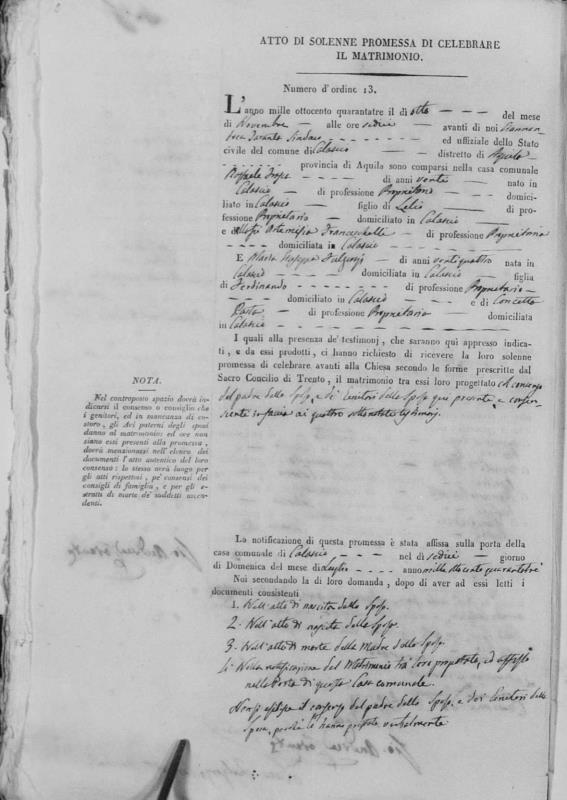 ATTO DI SOLENNE PROMESSA DI CELEBRARE
IL MATRIMONIO.
Numero d'ordine 13.
L'anno mille ottocento quarantatre il dì otto del mese
di Novembre alle ore sedici avanti di noi
Sindaco ed uffiziale dello Stato
civile del comune di Calascio distretto di Aquila
provincia di Aquila sono comparsi nella casa comunale
Raffaele di anni venti nato in
Calascio di professione Proprietario domici-
liato in Calascio figlio di Lelio di pro-
fessione Proprietario domiciliato in Calascio
e di Artemisia Franceschelli di professione Proprietaria
domiciliata in Calascio
E Maria Giuseppa Fulgenzj di anni ventiquattro nata in
Calascio domiciliata in Calascio figlia
di Ferdinando di professione Proprietario
domiciliato in Calascio e di Concetta
di professione Proprietaria domiciliata
in Calascio
I quali alla presenza de' testimonj, che saranno quì appresso indica-
ti, e da essi prodotti, ci hanno richiesto di ricevere la loro solenne
promessa di celebrare avanti alla Chiesa secondo le forme prescritte dal
Sacro Concilio di Trento, il matrimonio tra essi loro progettato col consenso
del padre dello Sposo, e dei Genitori della Sposa quì presente, e consen-
ziente in faccia ai quattro sottonotati testimonj.
NOTA.
Nel controposto spazio dovrà in-
dicarsi il consenso o consiglio che
i genitori, ed in mancanza di co-
storo, gli Avi paterni degli sposi
danno al matrimonio: ed ove non
siano essi presenti alla promessa,
dovrà menzionarsi nell'elenco dei
documenti l'atto autentico del loro
consenso: lo stesso avrà luogo per
gli atti rispettosi, pe' consensi dei
consigli di famiglia, e per gli e-
stratti di morte de' suddetti ascen-
denti.
La notificazione di questa promessa è stata affissa sulla porta della
casa comunale di Calascio nel dì sedici giorno
di Domenica del mese di Luglio anno mille ottocento quarantatrè
Noi secondando la di loro domanda, dopo di aver ad essi letti i
documenti consistenti
1. Nell'atto di nascita dello Sposo.
2. Nell'atto di nascita della Sposa.
3. Nell'atto di morte della Madre dello Sposo.
4. Nella notificazione del Matrimonio tra loro progettato, ed affisso
nella Porta di questa Casa comunale.
Non si esibisce il consenso del padre dello Sposo, e dei Genitori della
Sposa, perchè lo hanno prestato verbalmente